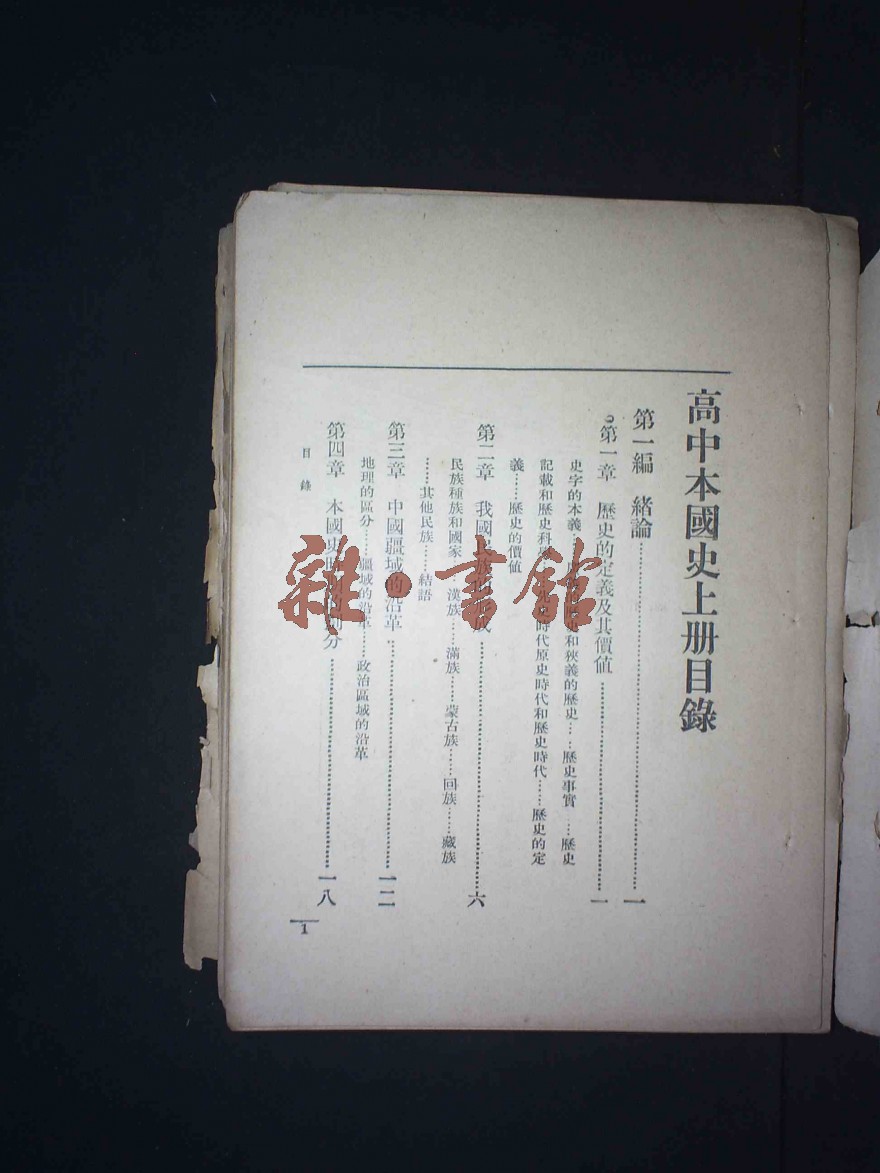 高中本國史上册目錄
第一編 緒論……一
第一章 歷史的定義及其價值……一
史字的本義……和狹義的歷史……歷史事實……歷史
記載和歷史科學……時代原史時代和歷史時代……歷史的定
義……歷史的價值
第二章 我國民族的形成……六
民族種族和國家……漢族……滿族……蒙古族……回族……藏族
……其他民族……結語
第三章 中國疆域的沿革……一二
地理的區分……疆域的沿革……政治區域的沿革
第四章 本國史時期的劃分……一八
目錄
1
雜·書館